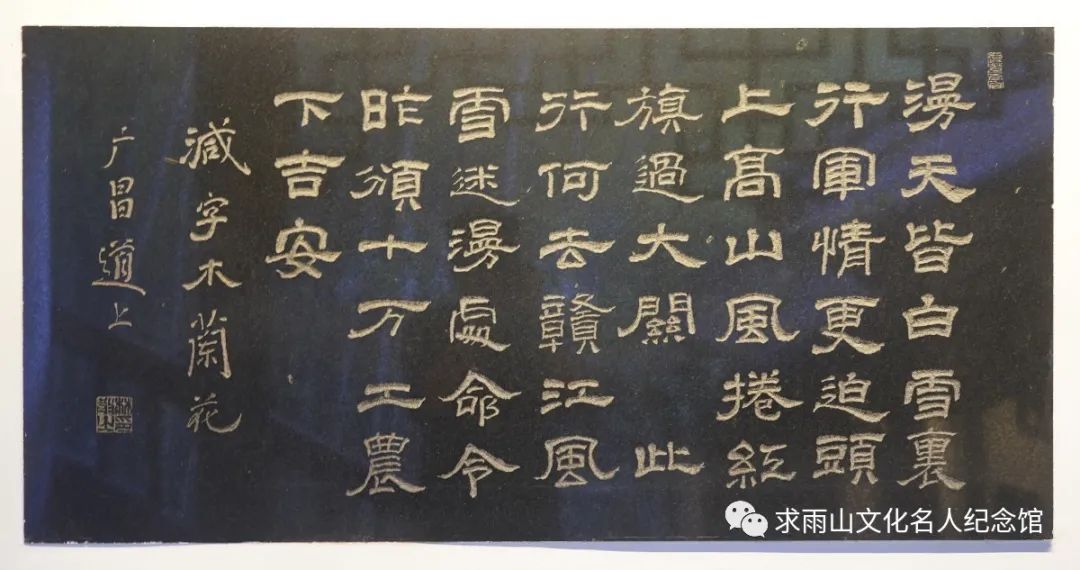 漫天皆白雪裏
行軍情更迫頭
上高山風捲紅
旗過大關 此
行何去贛江風
雪迷漫處命令
昨頒十万工農
下吉安
減字木蘭花
广昌道上
求雨山文化名人纪念馆